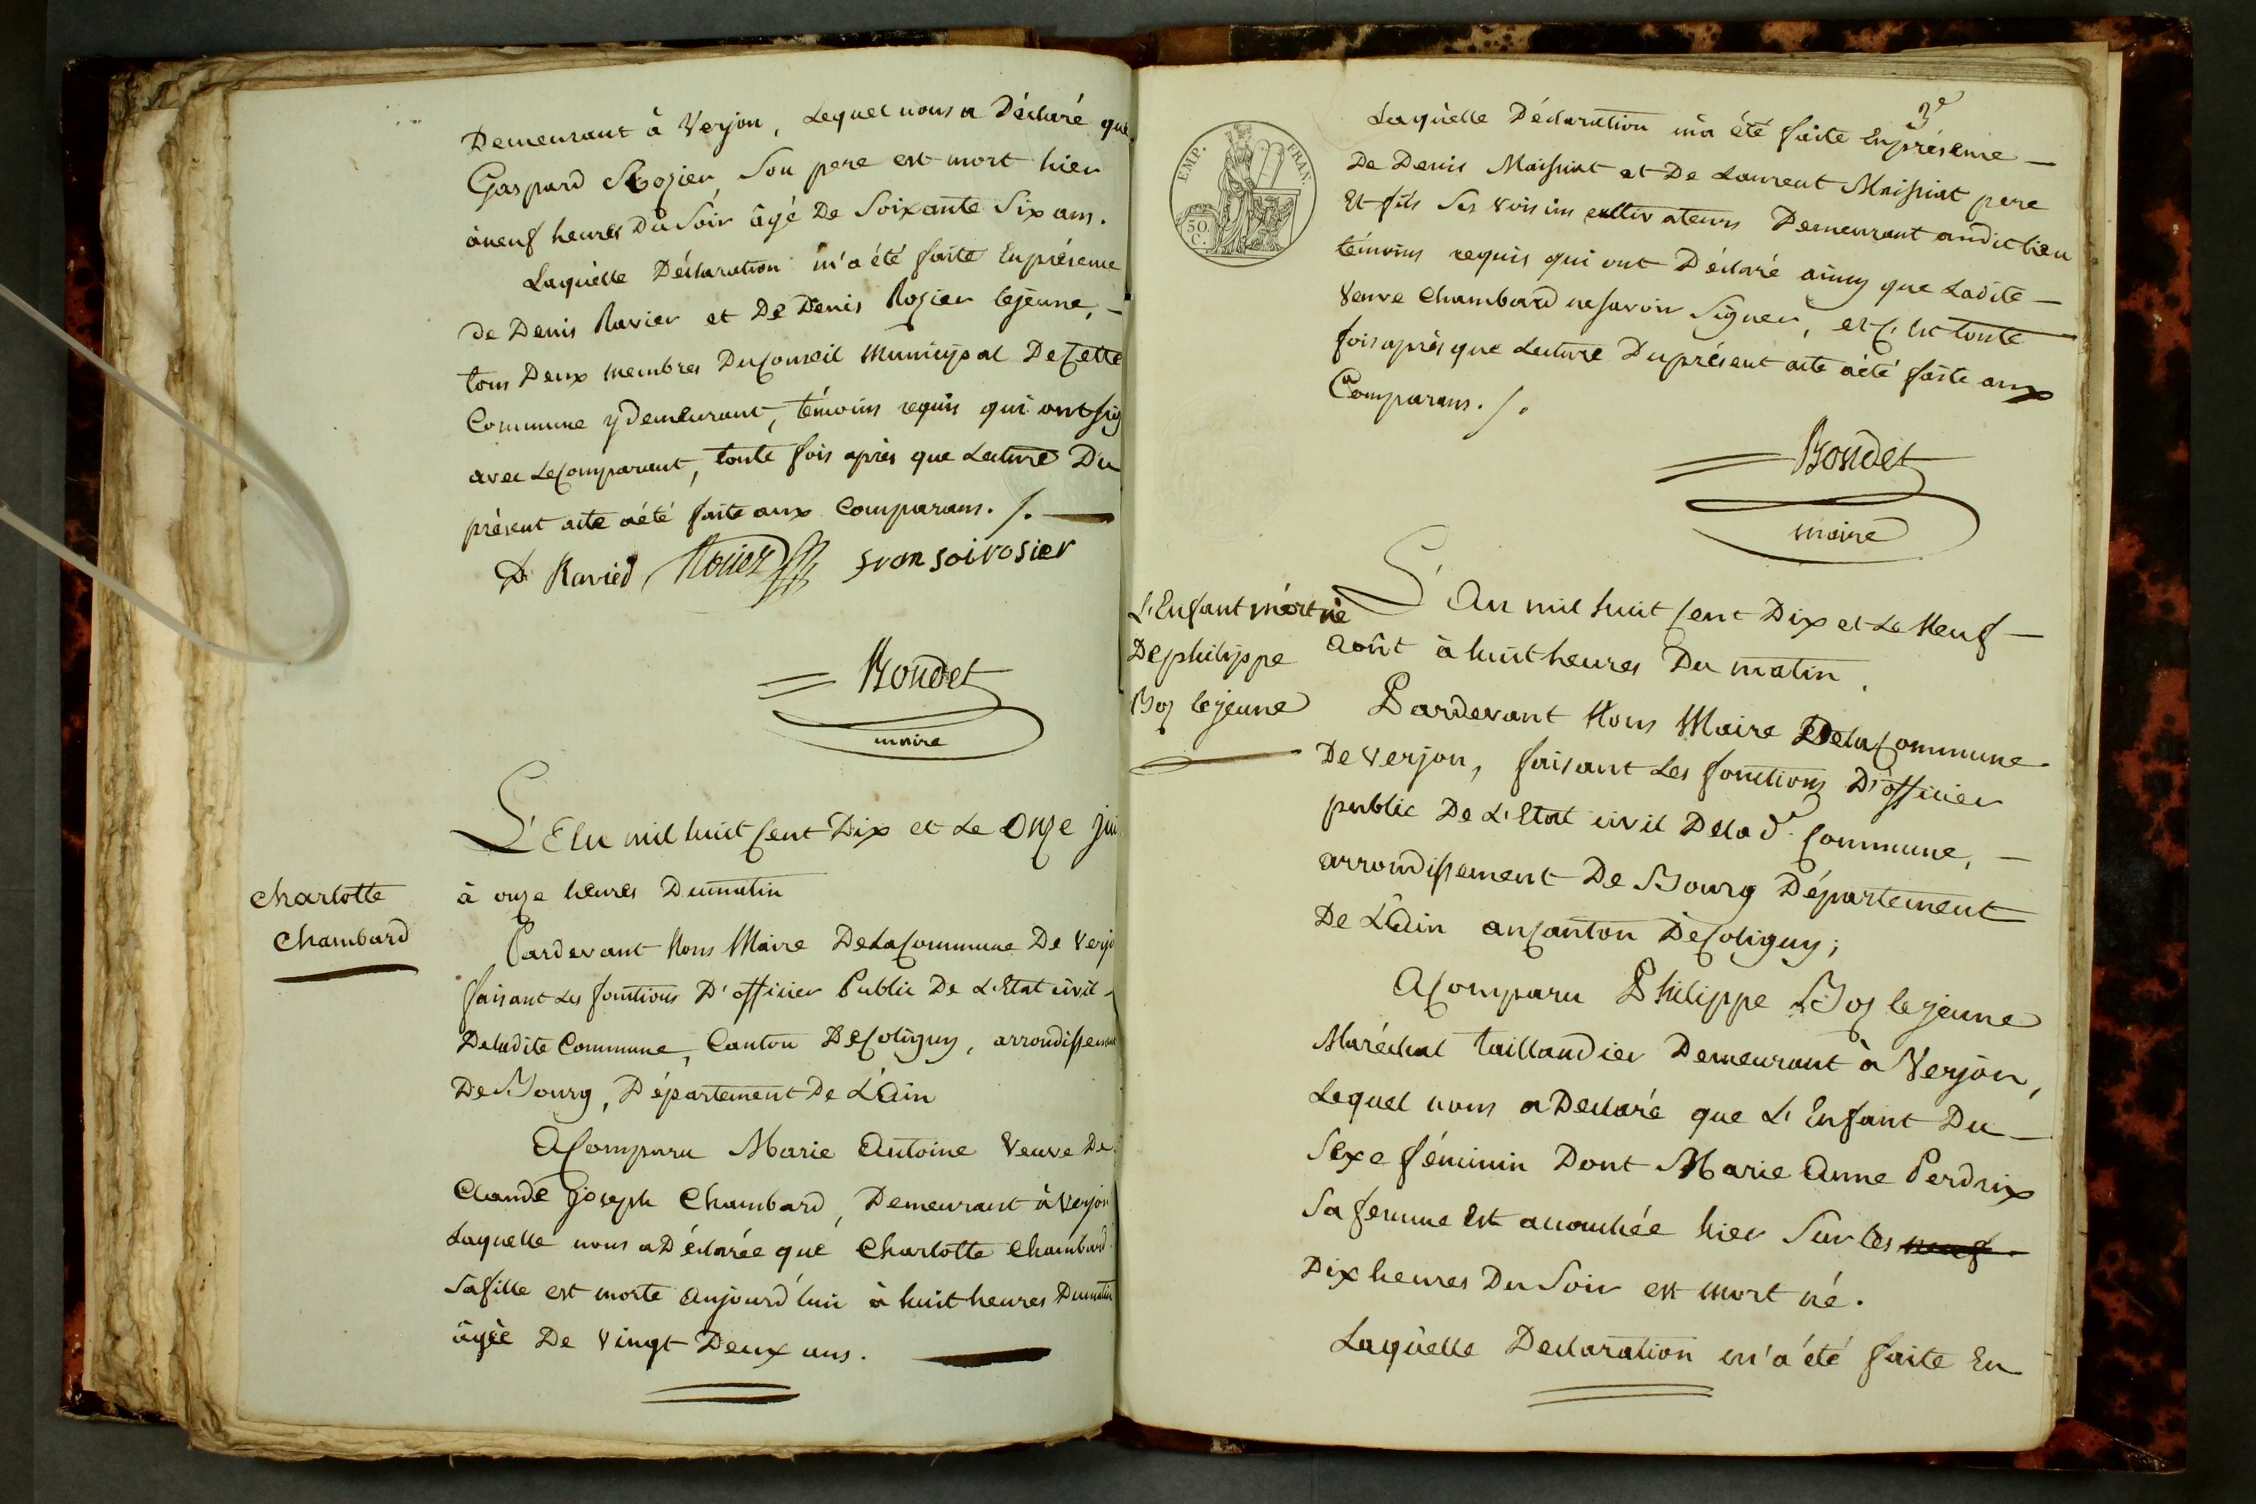 Demeurant à Verjon, Lequel nous a Déclaré que
Gaspard Rozier, Son pere est mort hier
à neuf heures Du Soir âgé De Soixante Six ans.
Laquèlle Déclaration m'a été faite En présence
de Denis Ravier et De Denis Rozier lejeune, -
tous Deux membres Du Conseil Municipal De Cette
Commune y demeurant, témoins requis qui ont sig
avec Le Comparant, toute fois après que Lecture Du
présent acte a été faite aux Comparans. /. —
D Ravied Rozier fransoi rosier
Bondet
maire
L'An mil huit Cent Dix et Le Onze jui
charlotte
Chambard
à onze heures Du matin
Pardevant Nous Maire De La Commune De Verjo
faisant Les fonctions D'officier Public De L'Etat civil -
De ladite Commune, Canton De Coligny, arrondissement
De Bourg, Département De L'Ain
A Comparu Marie Antoine Veuve De
Claude Joseph Chambard, Demeurant à Verjon
Laquelle nous a Déclarée que Charlotte Chambard
Sa fille est morte aujourd'hui à huit heures Du matin
âgée De Vingt Deux ans. —
3e
EMP. FRAN.
50. C.
Laquèlle Déclaration m'a été faite En présence —
De Denis Maissiat et De Laurent Maissiat pere
Et fils Ses voisins cultivateurs Demeurant audit lieu
témoins requis qui ont Déclaré ainsy que Ladite —
Veuve Chambard ne savoir Signer, et C'est toute
fois après que Lecture Du présent acte a été faite aux
Comparans. /.
Bondet
maire
L'Enfant mort né
De philippe
Boz lejeune
L'An mil huit Cent Dix et Le Neuf —
août à huit heures Du matin.
Pardevant Nous Maire De la Commune
De Verjon, faisant Les fonctions D'officier
public De L'Etat civil De la de Commune, —
arrondissement De Bourg Département
De L'Ain au Canton De Coligny;
A Comparu Philippe Boz le jeune
Maréchal taillandier Demeurant à Verjon,
Lequel nous a Declaré que L'Enfant Du —
Sexe féminin Dont Marie Anne Perdrix
Sa femme Est accouchée hier Sur les neuf -
Dix heures Du Soir est mort né.
Laquèlle Declaration m'a été faite En